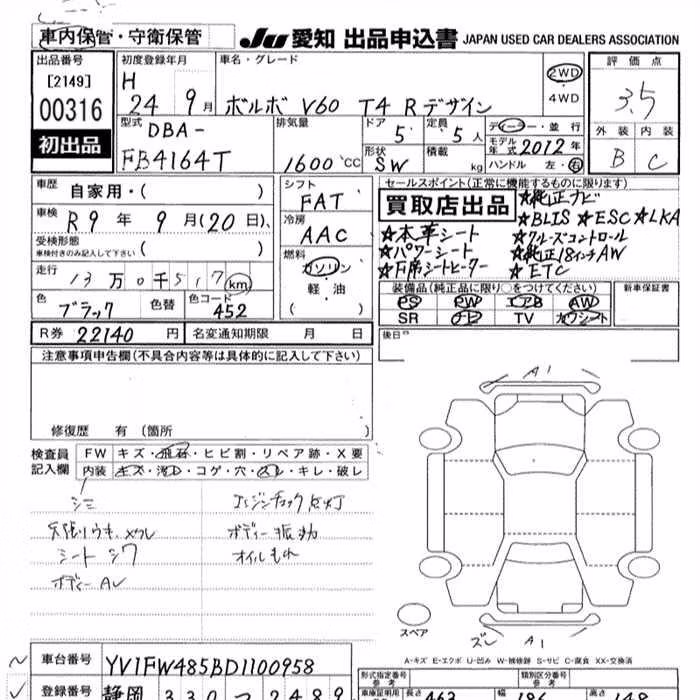 車内保管・守衛保管
JU 愛知 出品申込書 JAPAN USED CAR DEALERS ASSOCIATION
出品番号
[2149]
00316
初出品
初度登録年月
H
24 9月
車名・グレード
ボルボ V60 T4 Rデザイン
2WD
・
4WD
評価点
3.5
外装 内装
B C
型式
DBA-
FB4164T
排気量
1600 cc
ドア
5
定員
5人
形状
SW
積載
kg
ディーラー・並行
モデル年式 2012年
ハンドル 左・右
車歴 自家用・( )
車検 R9年9月(20日)、
受検形態
車検付きのみ記入して下さい ( )
走行
13万0千517km
色
ブラック
色替
色コード
452
R券 22140円
名変通知期限 月 日
シフト
FAT
冷房
AAC
燃料
ガソリン
・
軽・油
( )
セールスポイント(正常に機能するものに限ります)
買取店出品
★純正ナビ
★BLIS ★ESC★LKA
★本革シート
★クルーズコントロール
★パワーシート
★純正18インチAW
★F席シートヒーター
★ETC
装備品(純正品に限り○をつけてください)
PS PW エアB AW
SR ナビ TV カワシート
新車保証書
後日
注意事項申告欄(不具合内容等は具体的に記入して下さい)
修復歴 有(箇所 )
検査員
記入欄
FW キズ・飛石・ヒビ割・リペア跡・X要
内装 キズ・汚れ・コゲ・穴・スレ・キレ・破レ
シミ
エンジンチェック点灯
天張りウキ、メクレ
ボディー振動
シート シワ
オイルもれ
A1
A1
スペア
A-キズ E-エクボ U-凹み W-補修跡 S-サビ C-腐食 XX-交換済
車台番号 YV1FW485BD1100958
登録番号 静岡 330 つ 2489
形式指定番号
参考
類別区分番号
参考
長さ 463
幅 186
高さ 148